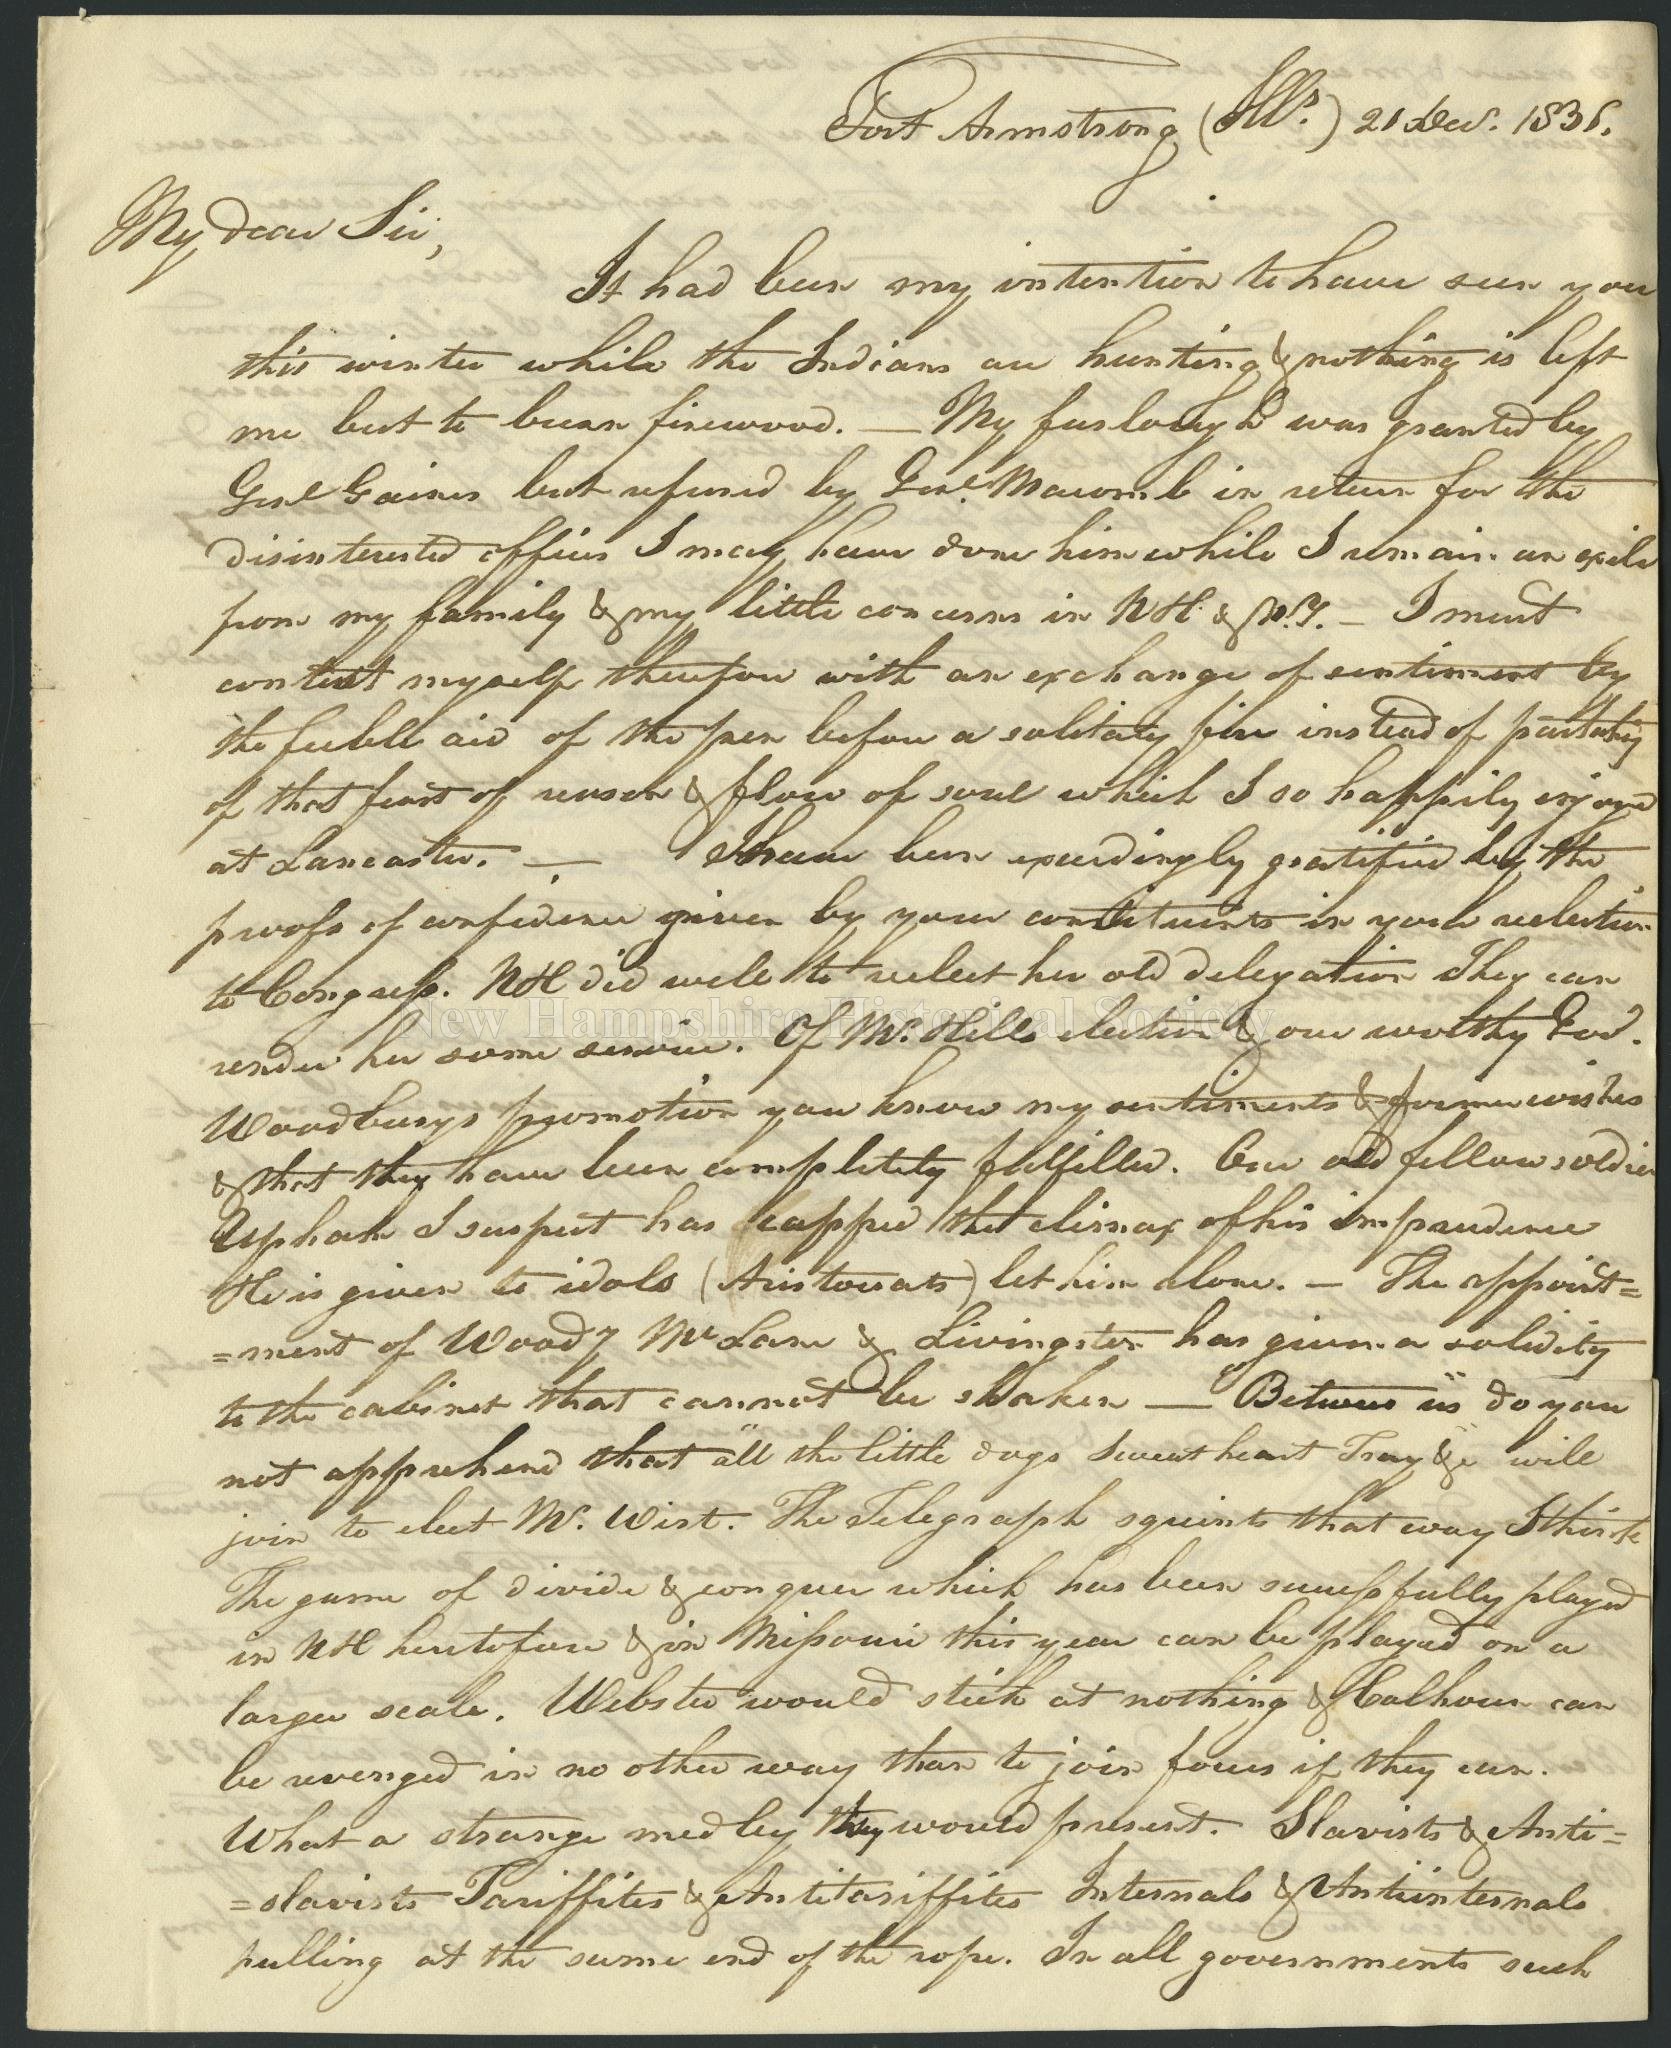 Fort Armstrong (Ills.) 21 Dec. 1831.
My dear Sir,
It had been my intention to have seen you
this winter while the Indians are hunting & nothing is left
me but to burn firewood. — My furlough was granted by
Genl Gaines but refused by Genl. Macomb in return for the
disinterested offices I may have done him while I remain an exile
from my family & my little concerns in NH. & N.Y. — I must
content myself therefore with an exchange of sentiment by
the feeble aid of the pen before a solitary fire instead of partaking
of that feast of reason & flow of soul which I so happily enjoyed
at Lancaster. — I have been exceedingly gratified by the
proofs of confidence given by your constituents in your reelection
to Congress. NH did well to reelect her old delegation They can
render her some service. Of Mr. Hills election & our worthy Gov.
New Hampshire Historical Society
Woodburys promotion you know my sentiments & former wishes
& that they have been completely fulfilled. Our old fellow soldier
Upham I suspect has capped the climax of his imprudence
He is given to idols (Aristocrats) let him alone. — The appoint=
=ment of Woody McLane & Livingston has given a solidity
to the cabinet that cannot be shaken — Between us do you
not apprehend that all the little dogs Sweetheart Tray &c will
join to elect Mr. Wirt. The Telegraph squints that way I think
The game of divide & conquer which has been successfully played
in NH heretofore & in Missouri this year can be played on a
larger scale. Webster would stick at nothing & Calhoun can
be revenged in no other way than to join forces if they can.
What a strange medley they would present. Slavists & Anti=
=slavists Tariffites & Antitariffites Internals & Antiinternals
pulling at the same end of the rope. In all governments such